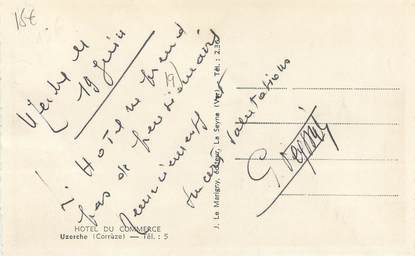 15€
Uzerche le
19 Juin
L'Hotel ne prend
pas de pensionnaires
Remerciements
sincères salutations
HOTEL DU COMMERCE
Uzerche (Corrèze) — Tél. : 5
J. Le Marigny, éditeur, La Seyne (Var) Tél. : 2.36